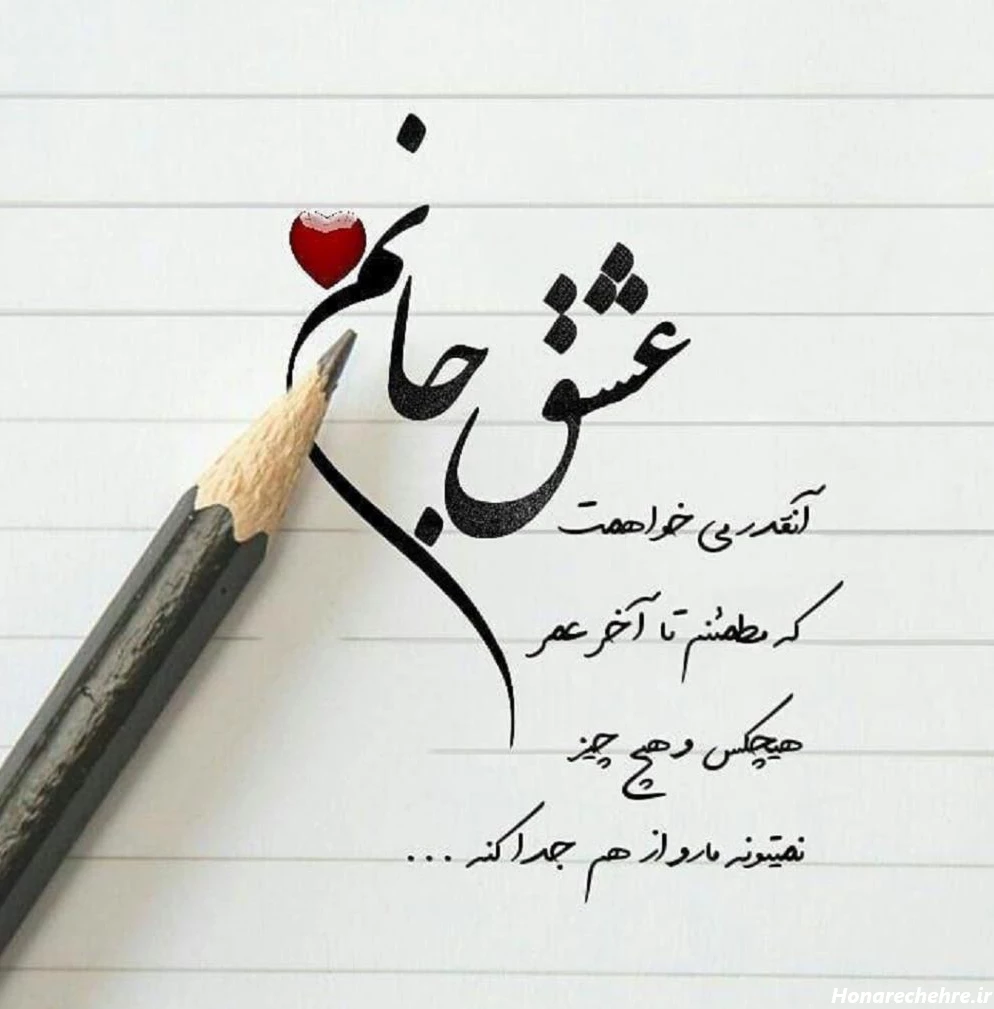 عشق جانم
آنقدر می خواهمت
که مطمئنم تا آخر عمر
هیچکس و هیچ چیز
نمیتونه مارو از هم جدا کنه ...
Honarechehre.ir